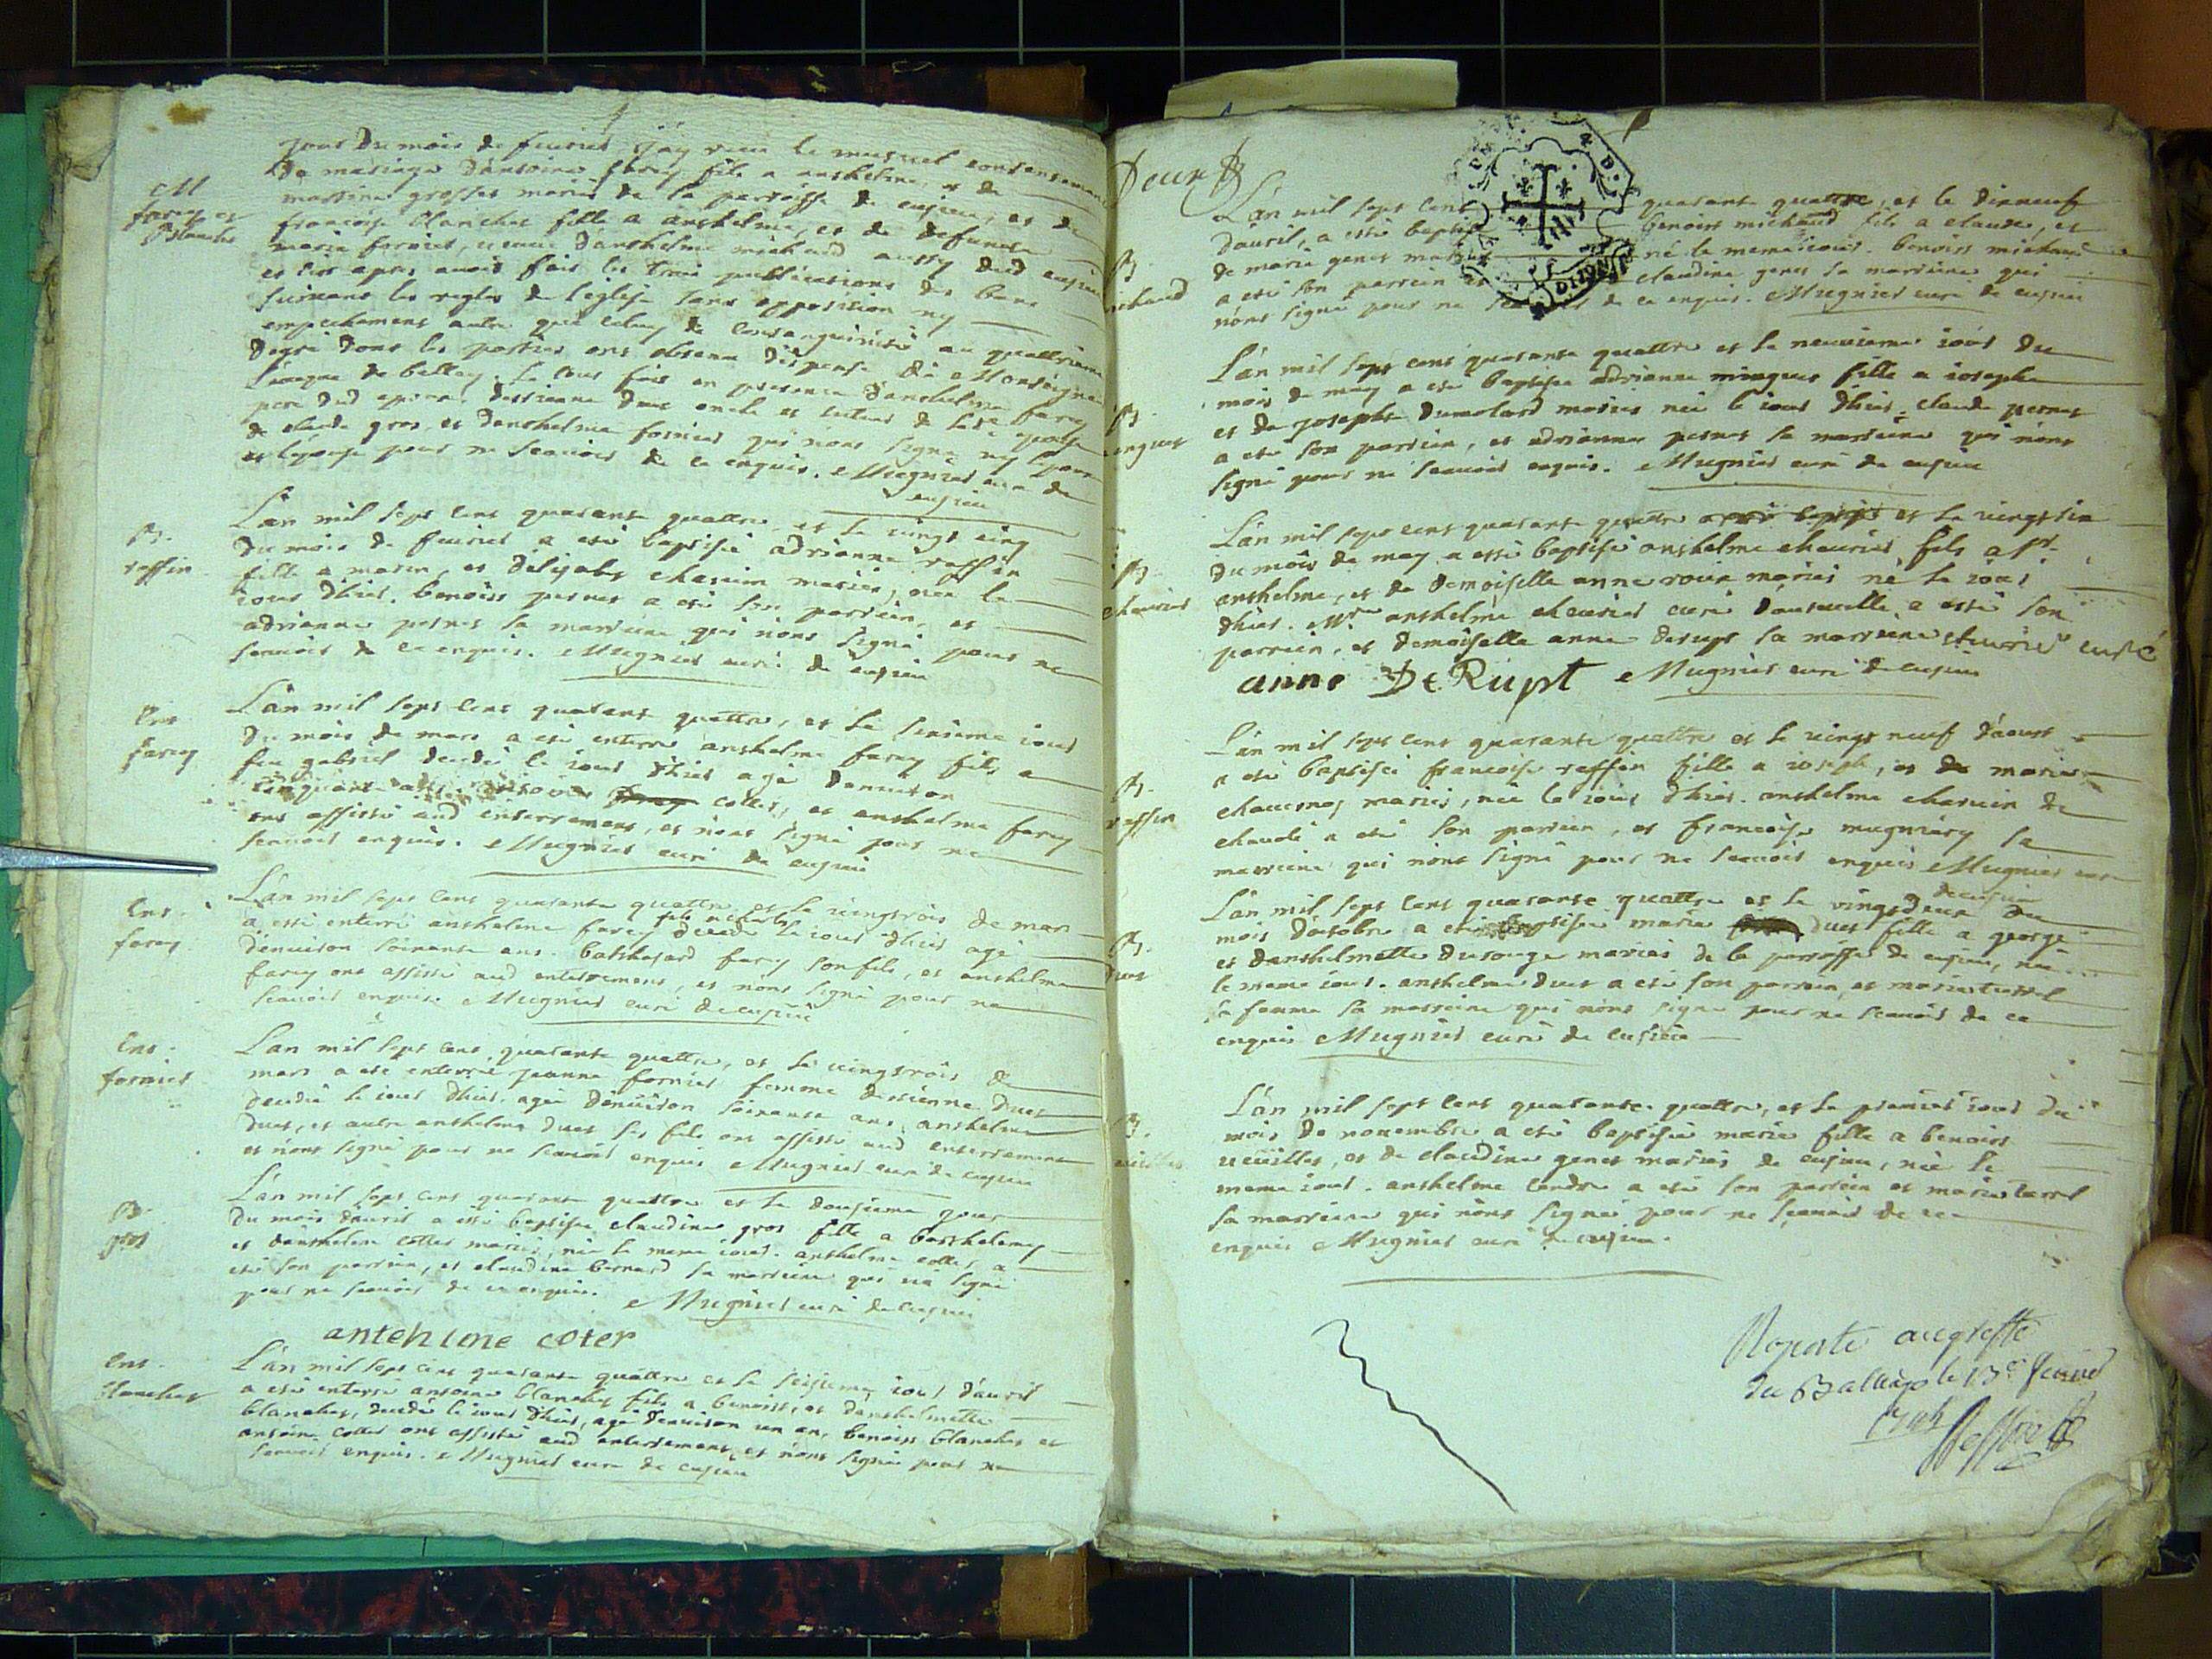 jour du mois de feurier j'ay reçu le mutuel consentement
de mariage d'antoine farcy fils a anthelme, et de
M
farcy et
blanchet
mariés de la parroisse de cusieu, et de
francoise blanchet fille a anthelme, et de defuncte
marie fornier, veuue d'anthelme michaud aussy dud cusieu
et apres auoir fait les trois publications des bans
suiuant les regles de l'eglise sans opposition ny
empechement autre que celuy de consanguinité au quattrieme
degré dont les parties ont obtenu dispense de Monseigneur
l'eveque de belley. Le tout fait en presence d'anthelme farcy
pere dud epoux, d'estienne duet oncle et tuteur de lade epouse
de claude gros, et d'anthelme fornier qui n'ont signé ny l'epoux
et l'epouse pour ne scauoir de ce enquis. Mugnier curé de
cusieu
B.
raffin
L'an mil sept cent quarante quattre, et le vingt cinq
du mois de feurier a esté baptisée adrianne raffin
fille a marin, et d'elisabet charuin mariés, née le
iour d'hier. benoist pernet a esté son parrein, et
adrianne pernet sa marreine qui n'ont signé pour ne
scauoir de ce enquis. Mugnier curé de cusieu
Ent.
farcy
L'an mil sept cent quarante quattre, et le sixieme iour
du mois de mars a esté enterré anthelme farcy fils a
feu gabriel decedé le iour d'hier agé d'enuiron
cinquante ans. collet, et anthelme farcy
ont assisté aud enterrement, et n'ont signé pour ne
scauoir enquis. Mugnier curé de cusieu
Ent.
farcy
L'an mil sept cent quarante quattre et le vingtrois de mars
a esté enterré anthelme farcy fils a charles decedé le iour d'hier agé
d'enuiron soixante ans. balthasard farcy son fils, et anthelme
farcy ont assisté aud enterrement, et n'ont signé pour ne
scauoir enquis. Mugnier curé de cusieu
Ent.
fornier
L'an mil sept cent quarante quattre, et le vingtrois de
mars a esté enterrée jeanne fornier femme d'estienne duet
decedée le iour d'hier. agée d'enuiron soixante ans. anthelme
duet, et autre anthelme duet ses fils ont assisté aud enterrement
et n'ont signé pour ne scauoir enquis. Mugnier curé de cusieu
B.
gros
L'an mil sept cent quarante quattre et le douzieme jour
du mois d'auril a esté baptisée claudine gros fille a barthelemy
et d'anthelme collet mariés, née le meme iour. anthelme collet a
esté son parrein, et claudine bernard sa marreine qui n'a signé
pour ne scauoir de ce enquis. Mugnier curé de cusieu
antehlme coter
Ent.
blanchet
L'an mil sept cent quarante quattre et le seizieme iour d'auril
a esté enterré antoine blanchet fils a benoist, et d'anthelmette
blanchet, decedé le iour d'hier, agé d'enuiron un an. benoist blanchet et
antoine collet ont assisté aud enterrement, et n'ont signé pour ne
scauoir enquis. Mugnier curé de cusieu
Deux
B.
michaud
L'an mil sept cent quarante quattre, et le dixneuf
d'auril, a esté baptisé benoist michaud fils a claude, et
de marie genet mariés né le meme iour. benoist michaud
a esté son parrein et claudine genet sa marreine qui
n'ont signé pour ne scauoir de ce enquis. Mugnier curé de cusieu
B.
L'an mil sept cent quarante quattre et le neuuieme iour du
mois de may a esté baptisée adrianne minguet fille a ioseph
et de josephe dumolard mariés née le iour d'hier. claude pernet
a esté son parrein, et adrianne pernet sa marreine qui n'ont
signé pour ne scauoir enquis. Mugnier curé de cusieu
B.
cheurier
L'an mil sept cent quarante quattre et le vingt six
du mois de may a esté baptisé anthelme cheurier fils a sr.
anthelme, et de demoiselle anne roux mariés né le iour
d'hier. anthelme cheurier curé a esté son
parrein, et demoiselle anne derupt sa marreine cheurier curé
anne DeRupt Mugnier curé de cusieu
B.
raffin
L'an mil sept cent quarante quattre et le vingt neuf d'aoust
a esté baptisée francoise raffin fille a ioseph, et de marie
mariés, née le iour d'hier. anthelme charuin de
a esté son parrein, et francoise mugniery sa
marreine qui n'ont signé pour ne scauoir enquis Mugnier curé
de cusieu
B.
duet
L'an mil sept cent quarante quattre et le vingtdeux du
mois d'octobre a esté baptisée marie duet fille a george
et d'anthelmette mariés de la parroisse de cusieu, née
le meme iour. anthelme duet a esté son parrein, et marie
sa femme sa marreine qui n'ont signé pour ne scauoir de ce
enquis Mugnier curé de cusieu
B.
L'an mil sept cent quarante quattre, et le premier iour du
mois de nouembre a esté baptisée marie fille a benoist
et de claudine genet mariés de cusieu, née le
meme iour. anthelme a esté son parrein et marie
sa marreine qui n'ont signé pour ne scauoir de ce
enquis Mugnier curé de cusieu.
au greffe
du Balliage le 13e feurier